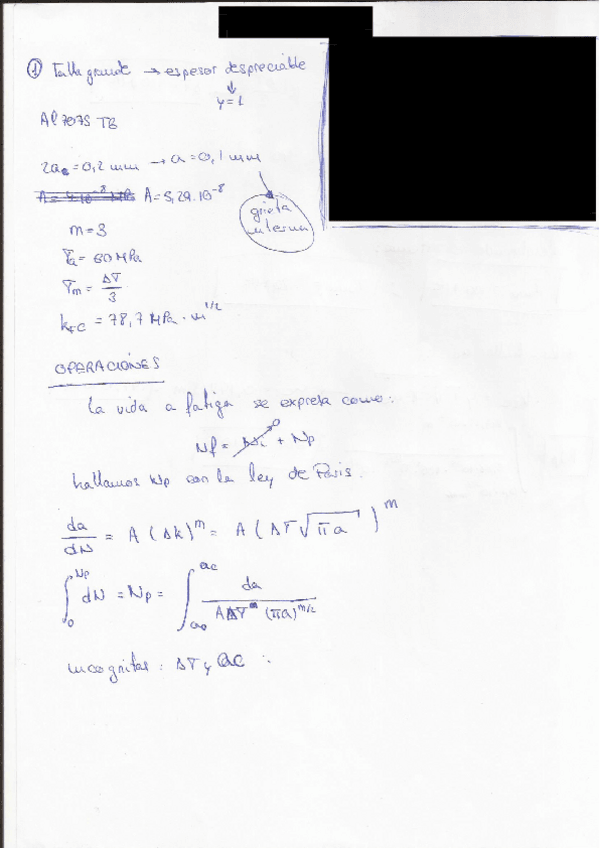 ① Talla grande → espesor despreciable
↓
y=1
Al 7075 T6
2a₀=0,2 mm → a=0,1 mm
A=5,29·10⁻⁸
grieta interna
m=3
σa=60 MPa
σm = Δσ/3
kIC = 78,7 MPa·m^1/2
OPERACIONES
La vida a fatiga se expresa como:
Nf = Ni + Np
0
hallamos Np con la ley de Paris.
da/dN = A (Δk)^m = A (Δσ√πa)^m
∫₀^Np dN = Np = ∫_a₀^ac da / AΔσ^m (πa)^m/2
incognitas: Δσ y ac :